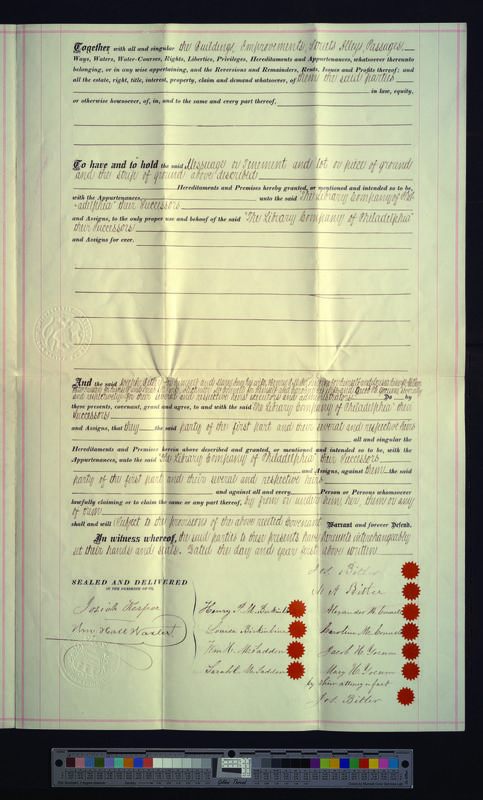 Together with all and singular the Buildings, Improvements, Streets Alleys, Passages,
Ways, Waters, Water-Courses, Rights, Liberties, Privileges, Hereditaments and Appurtenances, whatsoever thereunto
belonging, or in any wise appertaining, and the Reversions and Remainders, Rents, Issues and Profits thereof; and
all the estate, right, title, interest, property, claim and demand whatsoever, of them the said parties
in law, equity,
or otherwise howsoever, of, in, and to the same and every part thereof,
To have and to hold the said Messuage or Tenement and lot or piece of ground
and the strip of ground above described
Hereditaments and Premises hereby granted, or mentioned and intended so to be,
with the Appurtenances, unto the said "The Library Company of Phil-
adelphia" their Successors
and Assigns, to the only proper use and behoof of the said "The Library Company of Philadelphia"
their Successors
and Assigns for ever.
And the said
and respectively for their several and respective heirs executors and administrators Do by
these presents, covenant, grant and agree, to and with the said "The Library Company of Philadelphia" their
Successors
and Assigns, that they the said party of the first part and their several and respective heirs
all and singular the
Hereditaments and Premises herein above described and granted, or mentioned and intended so to be, with the
Appurtenances, unto the said "The Library Company of Philadelphia" their Successors
and Assigns, against them the said
party of the first part and their several and respective heirs
and against all and every Person or Persons whomsoever
lawfully claiming or to claim the same or any part thereof, by from or under him, her, them or any
of them
shall and will Subject to the provisions of the above recited Covenant Warrant and forever Defend.
In witness whereof, the said parties to these presents have hereunto interchangeably
set their hands and seals. Dated the day and year first above written
SEALED AND DELIVERED
IN THE PRESENCE OF US,
Jos. Bitler
M A Bitler
Henry P. M. Birkinbine
Alexander H.
Louisa Birkinbine
Caroline M.
Wm. Hall Waxler
Wm. V. McFadden
Jacob H. Yocum
Sarah C. McFadden
Mary W. Yocum
by their attorney in fact
Jos. Bitler